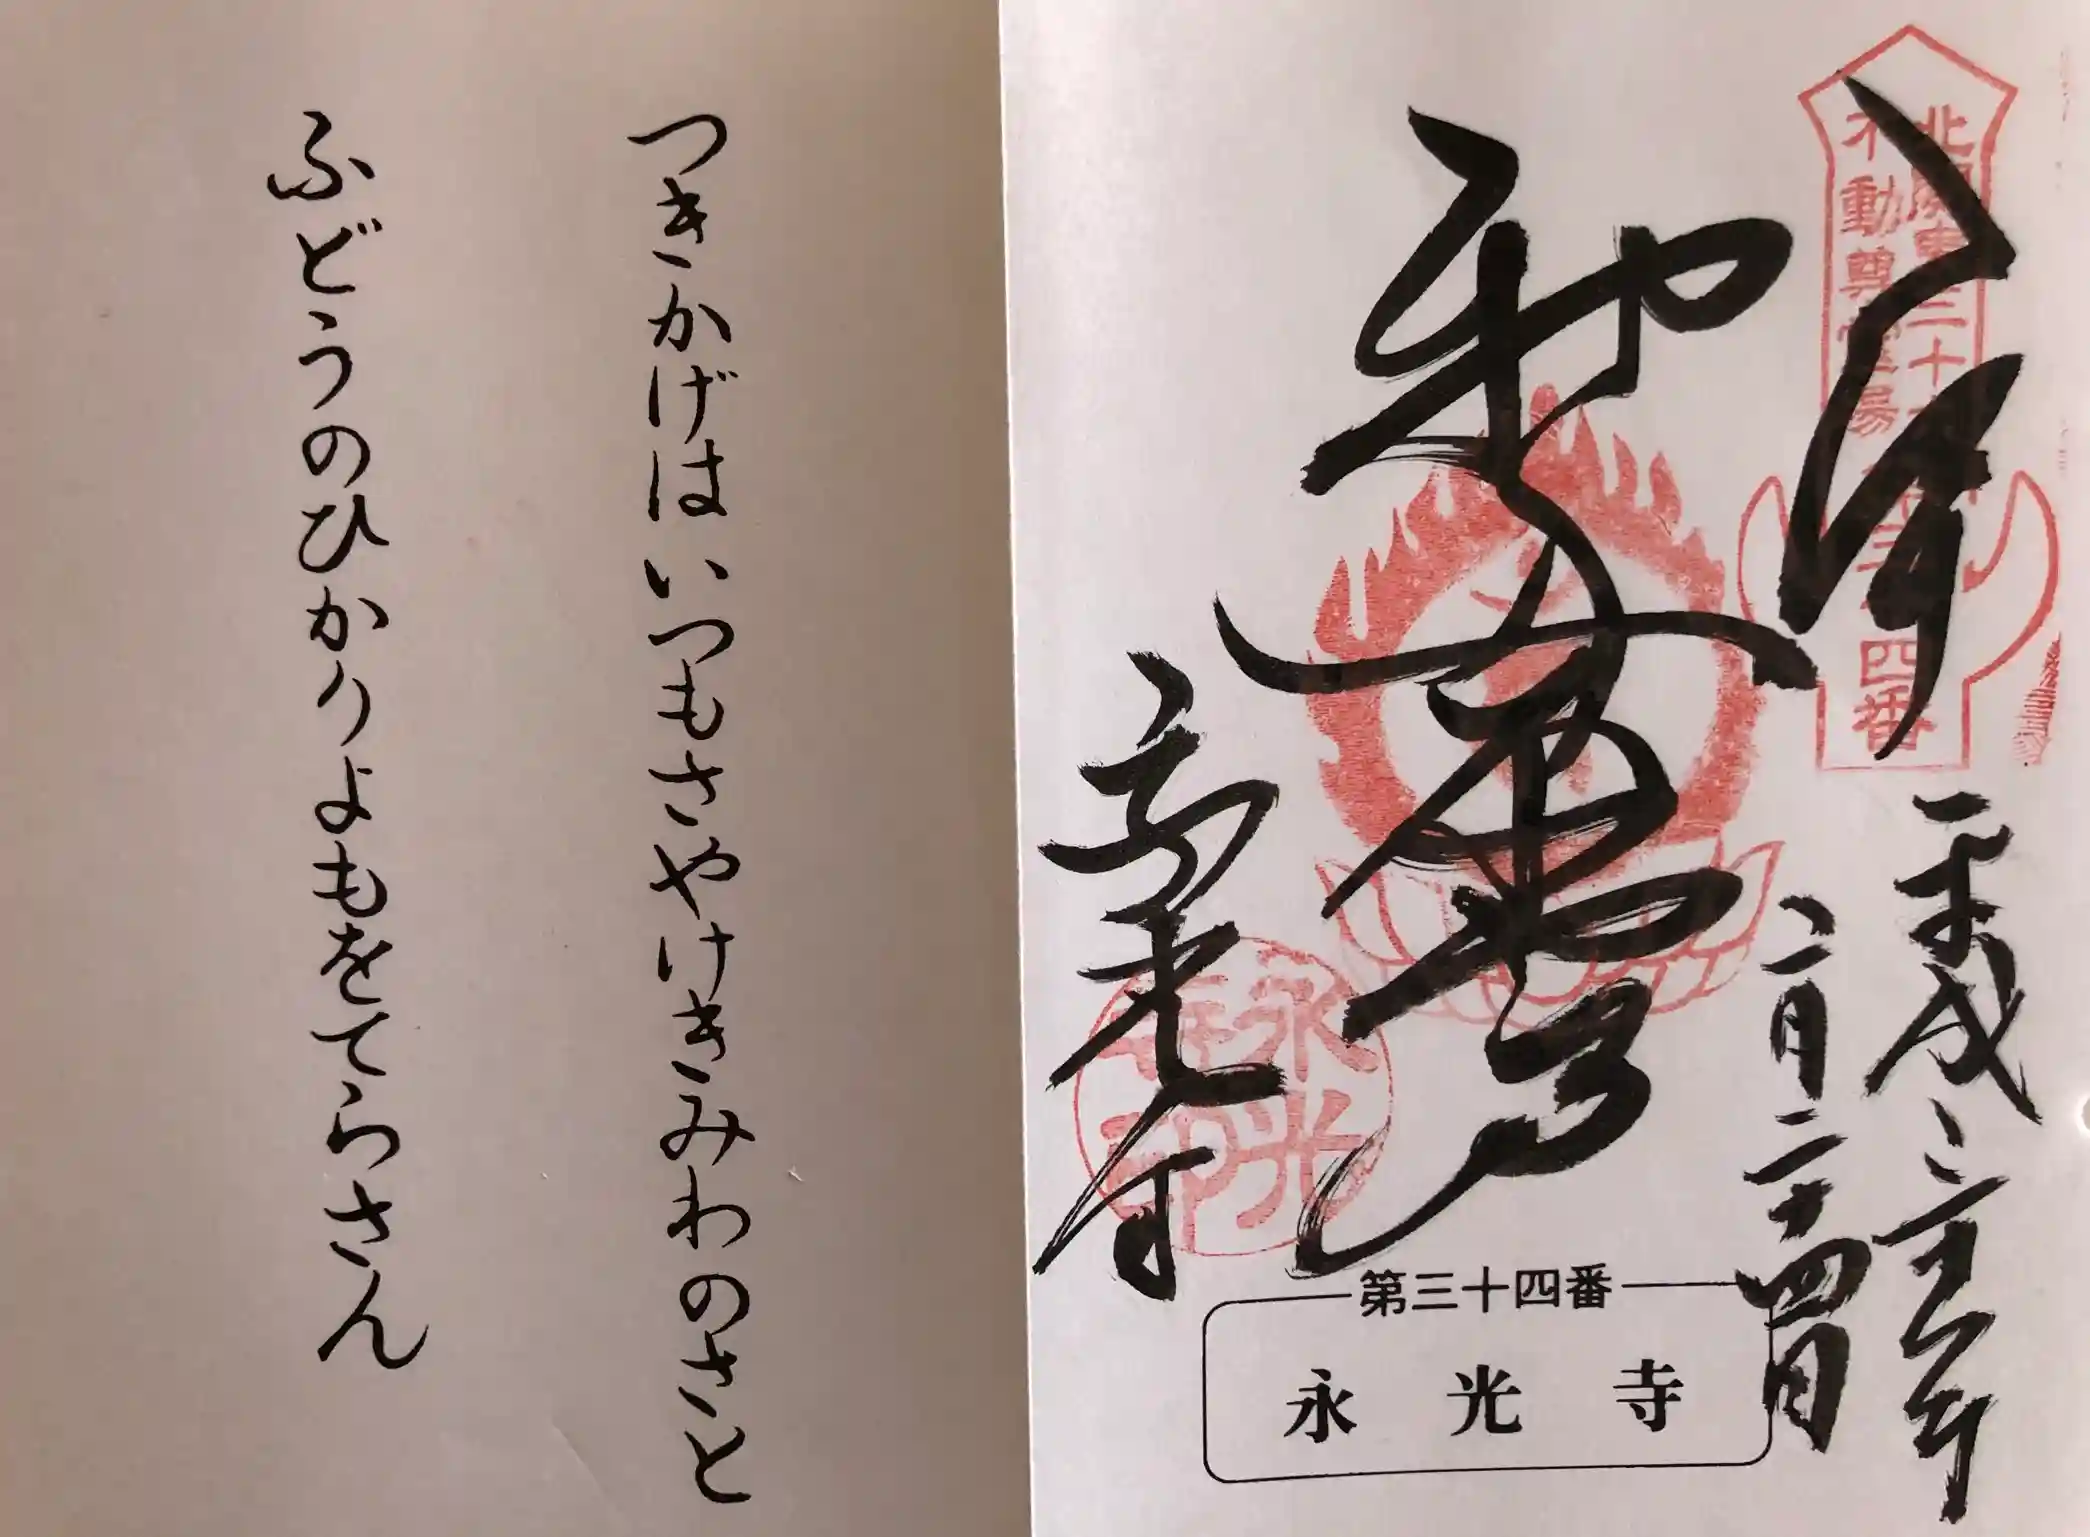 北関東三十六
不動尊霊場第三十四番
奉拝
平成三十年
二月二十四日
永光寺
永光
寺印
第三十四番
永光寺
つきかげはいつもさやけきみわのさと
ふどうのひかりよもをてらさん